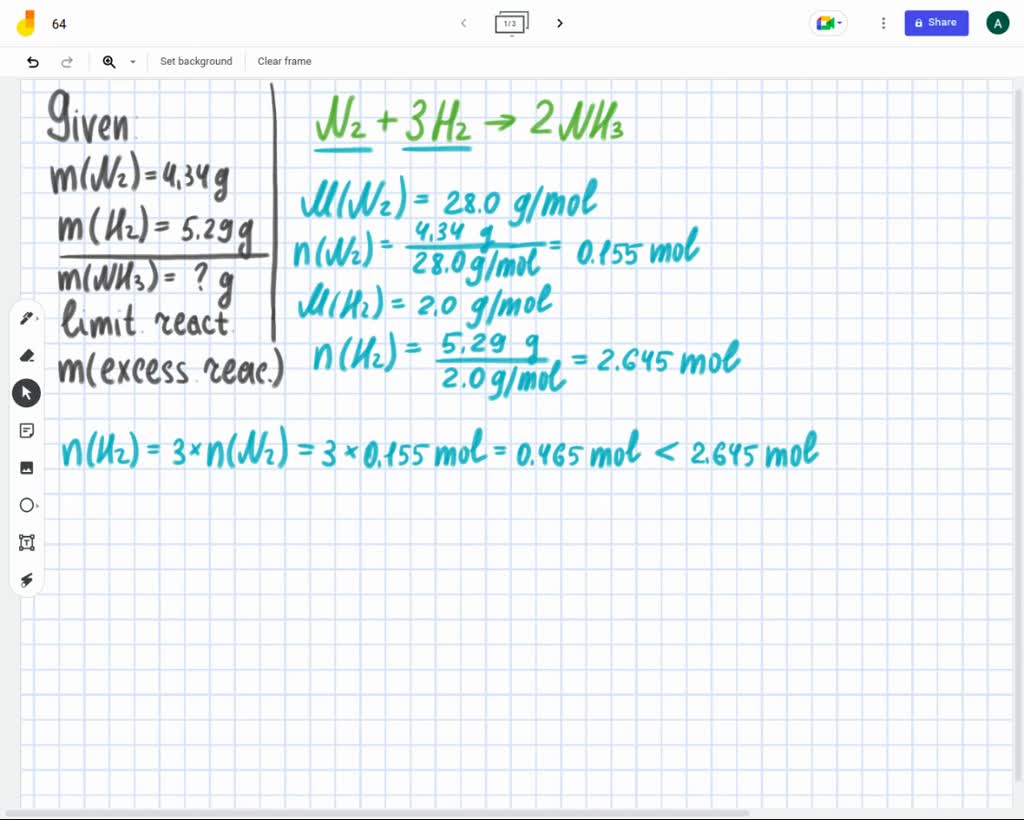 64
1/3
Share
A
Set background
Clear frame
Given:
m(N₂) = 4,34 g
m(H₂) = 5.29 g
m(NH₃) = ? g
limit react
m(excess reac.)
N₂ + 3H₂ → 2NH₃
M(N₂) = 28.0 g/mol
n(N₂) = 4,34 g / 28.0 g/mol = 0.155 mol
M(H₂) = 2.0 g/mol
n(H₂) = 5,29 g / 2.0 g/mol = 2.645 mol
n(H₂) = 3 × n(N₂) = 3 × 0.155 mol = 0.465 mol < 2.645 mol